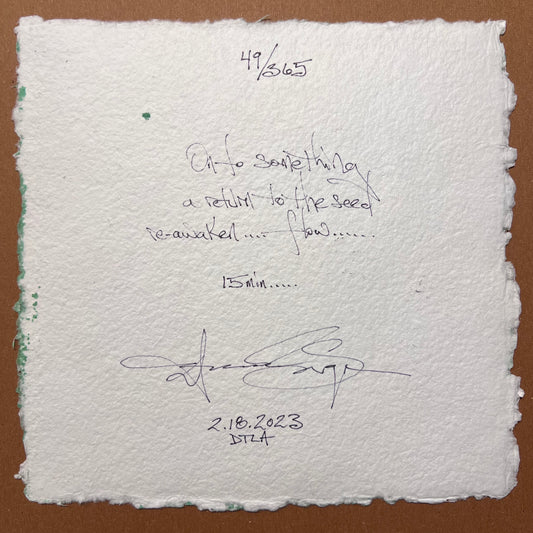 49/365
On to something
a return to the seed
re-awaken.... flow......
15min.....
2.18.2023
DTLA